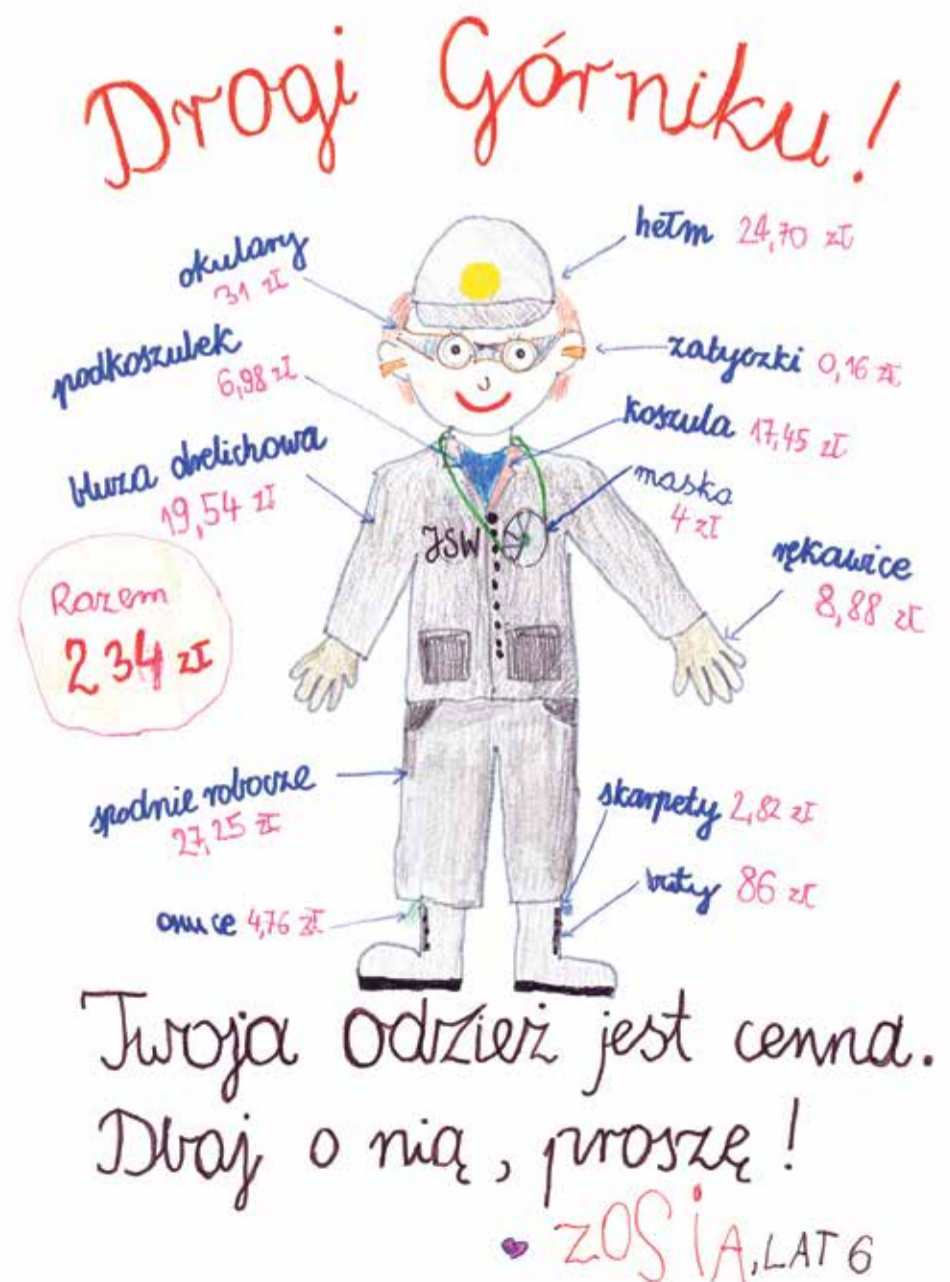 Drogi Górniku!
hełm 24,70 zł
okulary
31 zł
zatyczki 0,16 zł
podkoszulek
6,98 zł
koszula 17,45 zł
bluza drelichowa
19,54 zł
maska
4 zł
JSW
rękawice
8,88 zł
Razem
234 zł
spodnie robocze
27,25 zł
skarpety 2,82 zł
buty 86 zł
onuce 4,76 zł
Twoja odzież jest cenna.
Dbaj o nią, proszę!
ZOSIA, LAT 6